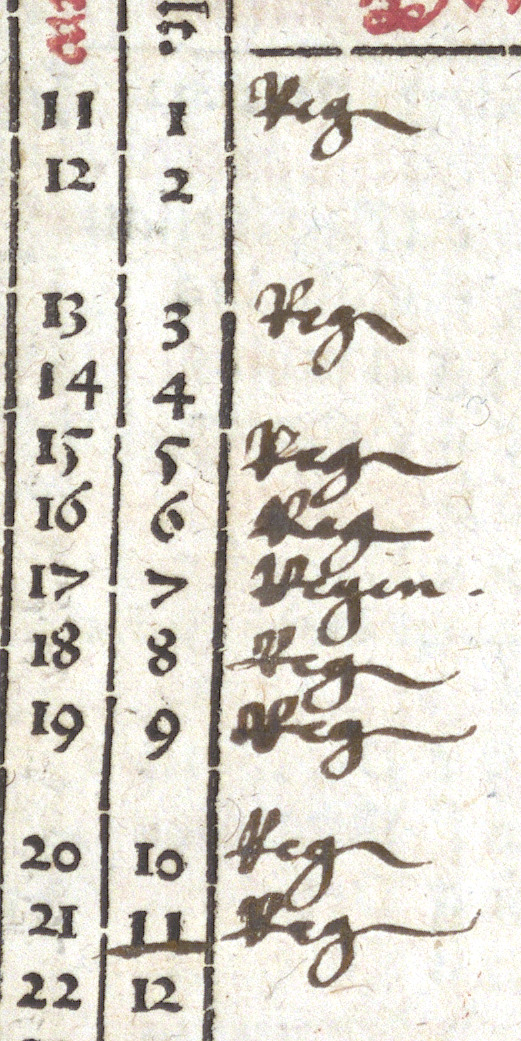 11 1 Reg
12 2
13 3 Reg
14 4
15 5 Reg
16 6 Reg
17 7 Regin.
18 8 Reg
19 9 Reg
20 10 Reg
21 11 Reg
22 12